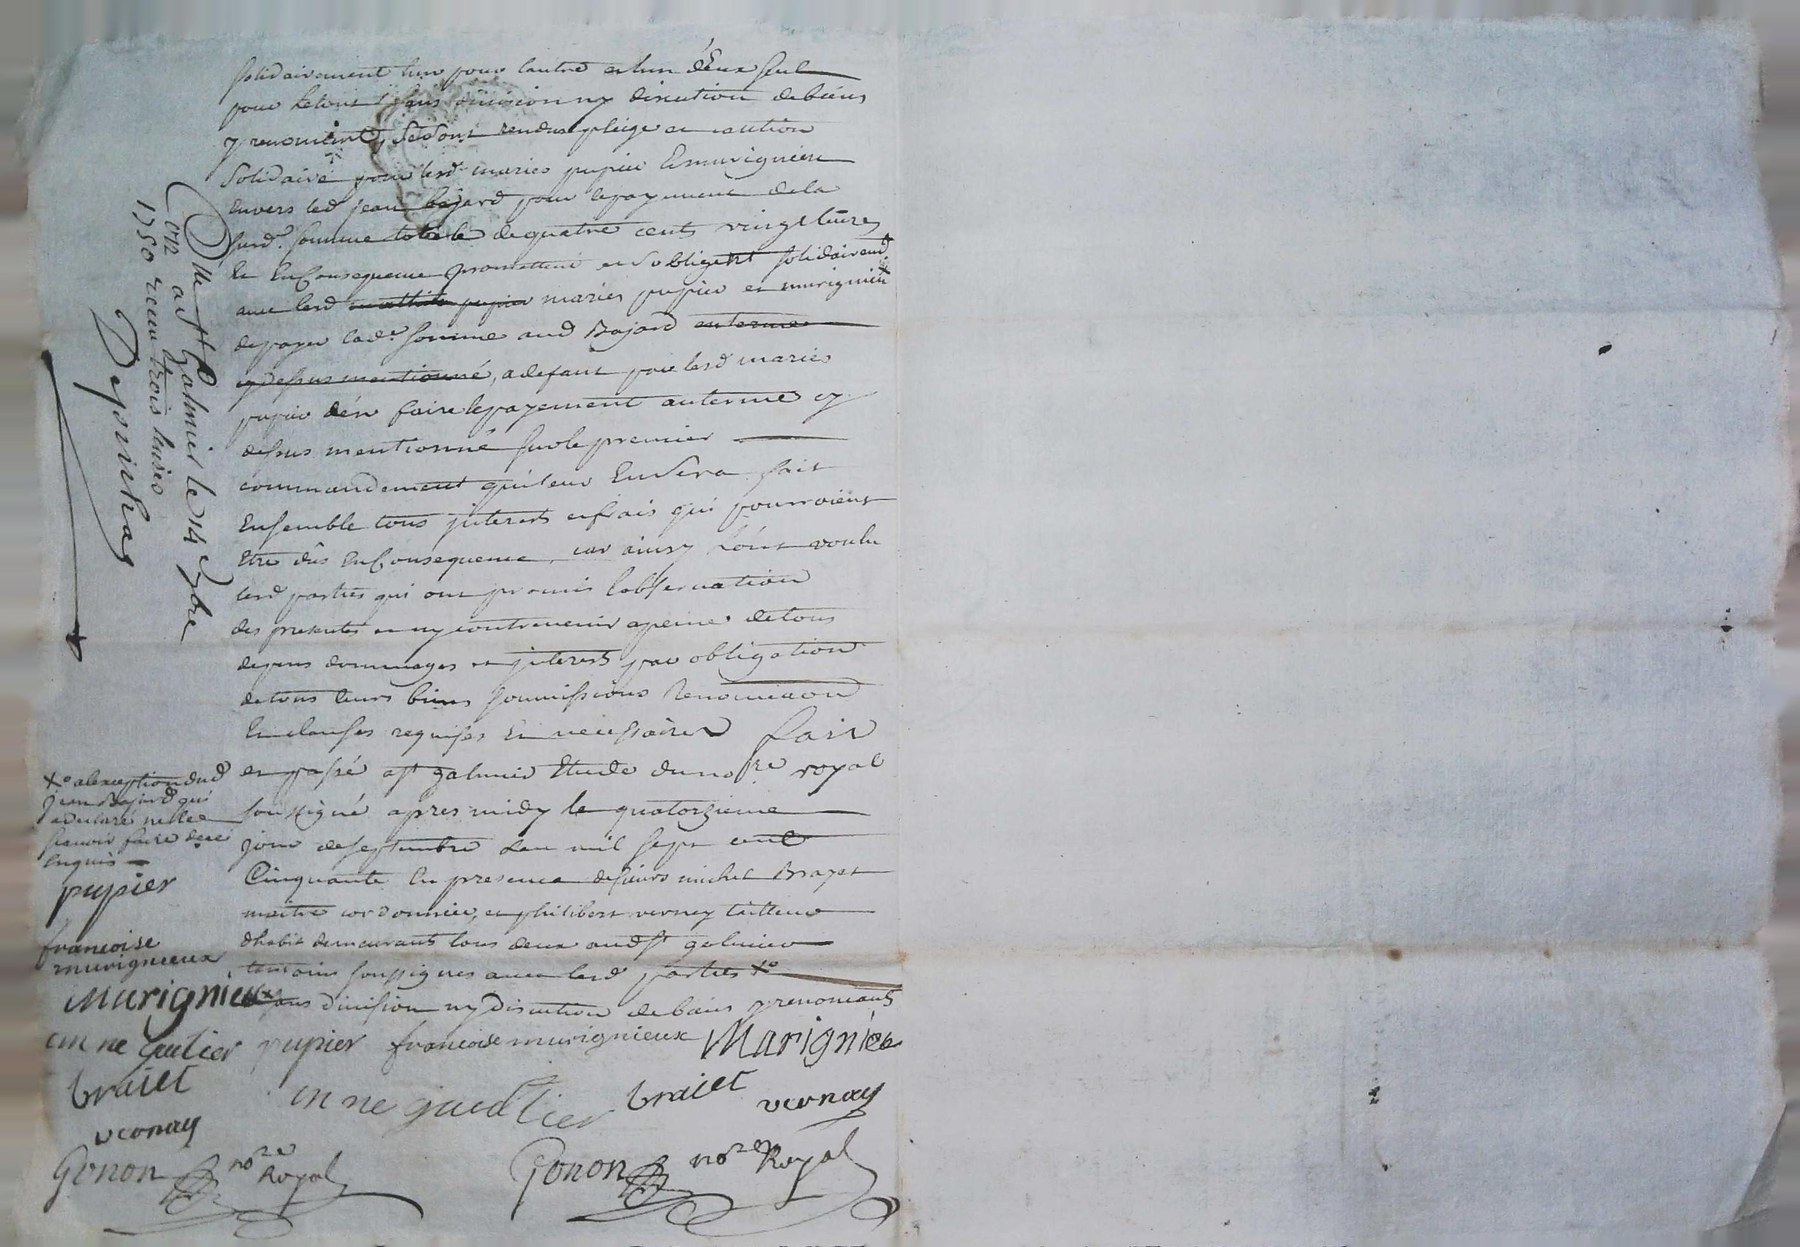 solidairement lun pour lautre et lun d'Eux seul
pour Le tout sans division ny discution de biens
y renoncant, se sont rendus pleige et caution
solidaire pour lesd. mariés pupier Et murignieu
Envers led. jean bajard pour le payement de la
susd. somme totale de quatre cents vingt livres
Et En Consequence promettent et s'obligent solidairemt.
avec lesd. pupier mariés pupier et murignieu
de payer lad. somme aud. Bajard au terme
cy dessus mentionné, a defaut par lesd. mariés
pupier d'én faire le payement au terme cy
dessus mentionné sur le premier
commandement qui leur En sera fait
Ensemble tous jnterets et frais qui pourroient
Etre dûs En Consequence, car ainsy L'ont voulu
lesd. parties qui ont promis l'observation
des presentes et ny contrevenir a peine de tous
depens dommages et jnterests par obligation
de tous leurs biens soumissions Renonciaon
Et clauses requises Et necessaires fait
et passé a st. galmier Etude du nore. royal
soussigné apres midy le quatorzieme
jour de septembre L'an mil sept cent
Cinquante En presence de sieurs michel Brayet
maitre cordonnier, et philibert verney tailleur
d'habit demeurants tous deux aud. st. galmier
temoins soussignes avec lesd. parties Xo
sans division ny discution de biens y renoncants
pupier francoise murignieux Marignieu
anne gaultier braiet vernay
Gonon nore. Royal
Xo a l'exception dud.
jean Bajard qui
a declaré ne les
scavoir faire de ce
Enquis
pupier
francoise
murignieux
Marignieux
anne gautier
braiet
vernay
Gonon nore. Royal
Con. a St. Galmier le 14 7bre
1750 receu trois livres
Desvichas